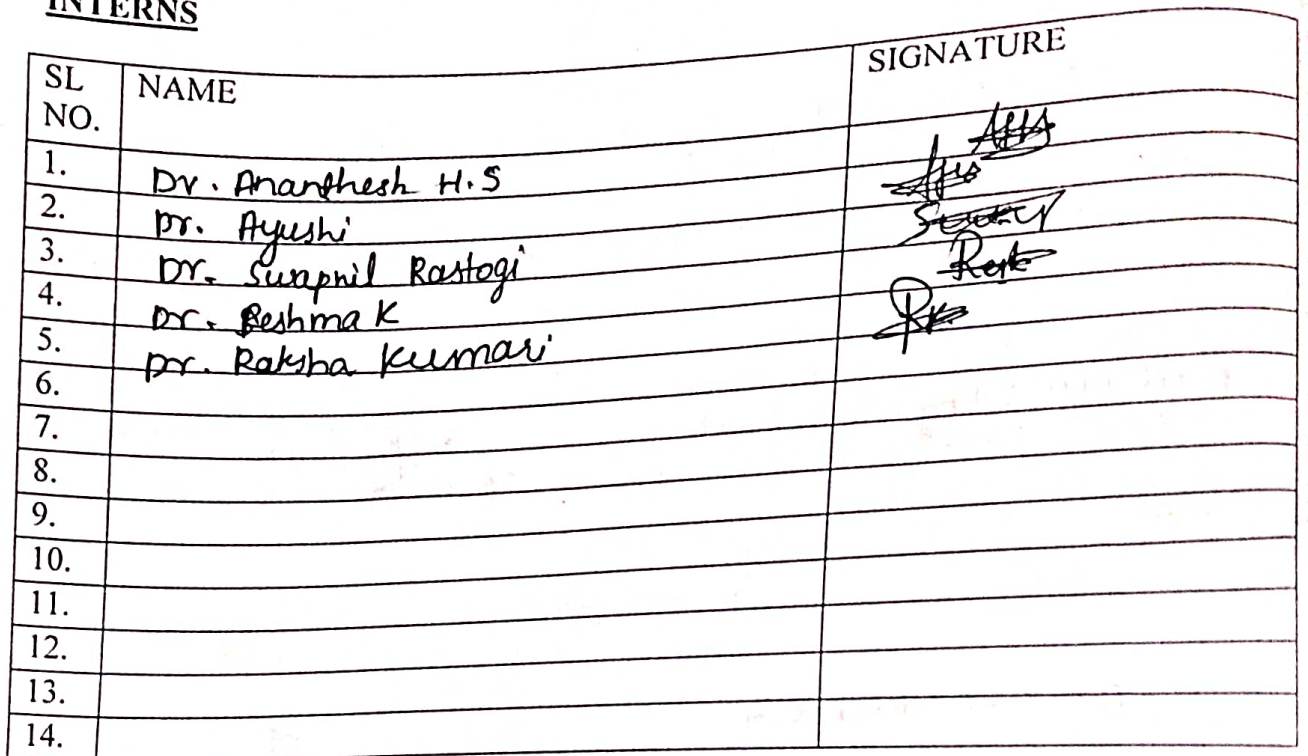 INTERNS
SL NO. NAME SIGNATURE
1. Dr. Ananthesh H.S
2. Dr. Ayushi
3. Dr. Swapnil Rastogi
4. Dr. Reshma K
5. Dr. Raksha Kumari
6.
7.
8.
9.
10.
11.
12.
13.
14.